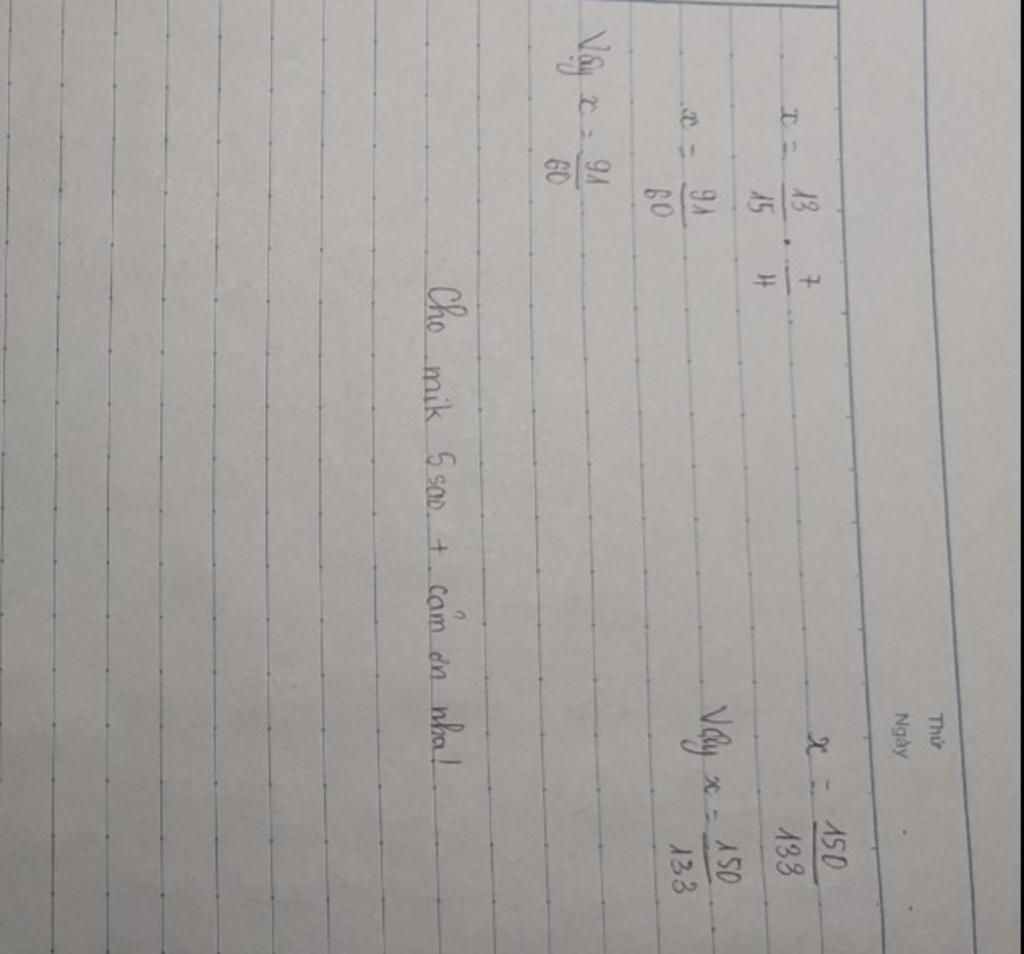 Thứ
Ngày
x = 13/15 . 7/4
x = 91/60
Vậy x = 91/60
x = 150/133
Vậy x = 150/133
Cho mik 5 sao + cảm ơn nha!